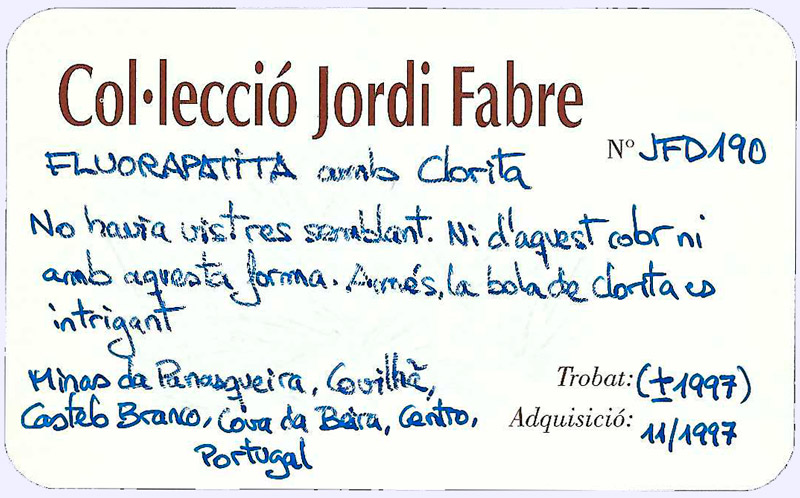 Col·lecció Jordi Fabre
Nº JFD190
FLUORAPATITA amb Clorita
No havia vist res semblant. Ni d'aquest color ni
amb aquesta forma. A més, la bola de clorita es
intrigant
Minas da Panasqueira, Covilhã,
Castelo Branco, Cova da Beira, Centro,
Portugal
Trobat: (±1997)
Adquisició: 11/1997